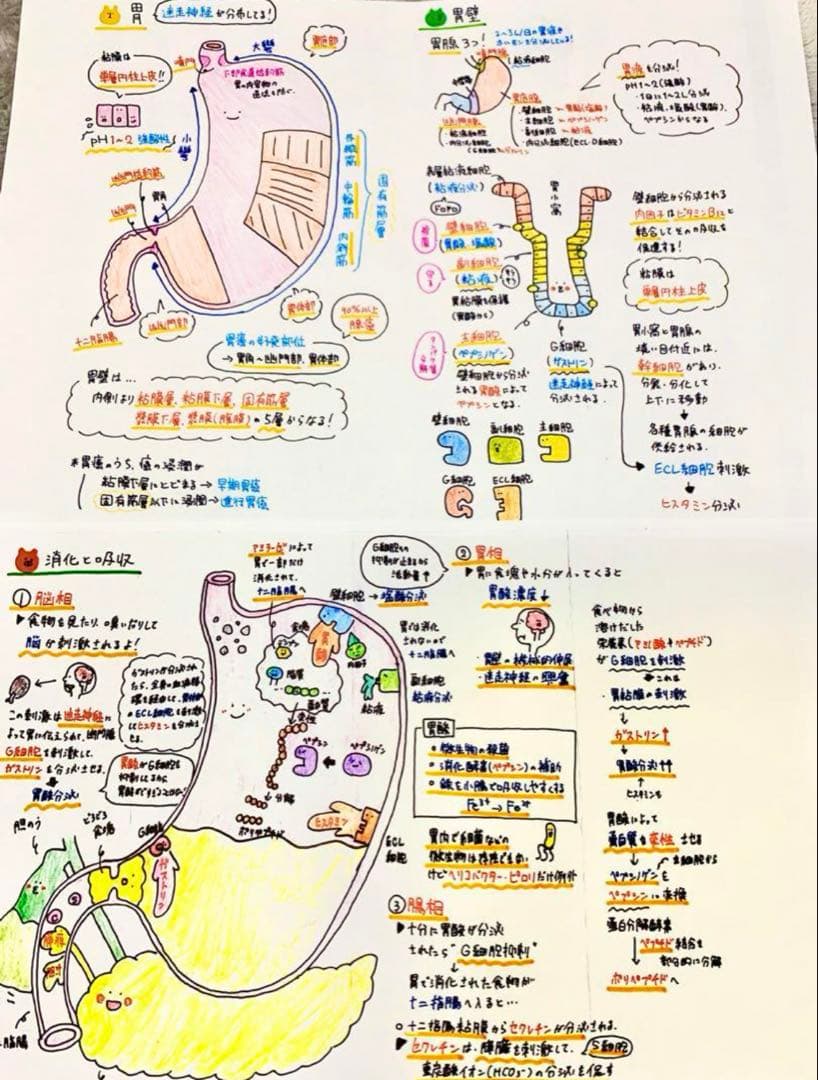 胃
迷走神経が分布してる!
粘膜は
単層円柱上皮!!
pH1~2 強酸性
噴門
大彎
胃底部
下部食道括約筋
胃の内容物の
逆流を防ぐ。
小彎
幽門括約筋
幽門
胃角
十二指腸
幽門部
胃体部
外縦筋
中輪筋
内斜筋
固有筋層
90%以上
腺癌
胃癌の好発部位
→ 胃角~幽門部、胃体部
胃壁は…
内側より粘膜層、粘膜下層、固有筋層
漿膜下層、漿膜(腹膜)の5層からなる!
*胃癌のうち、癌の浸潤が
粘膜下層にとどまる→早期胃癌
固有筋層以下に浸潤→進行胃癌
胃壁
胃腺3つ!
噴門腺
粘液細胞
胃底腺
・壁細胞→胃酸(塩酸)
・主細胞→ペプシノーゲン
・副細胞→粘液
・内分泌細胞(ECL・D細胞)
幽門腺
・粘液細胞
・内分泌細胞
胃液を分泌!
pH1~2(強酸)
・1日に1~2L分泌
・粘液、塩酸(胃酸)、
ペプシンからなる
表層粘液細胞
(粘液分泌)
胃小窩
壁細胞
(胃酸・塩酸)
副細胞
(粘液)
胃粘膜を保護
(胃酸から)
主細胞
(ペプシノゲン)
壁細胞から分泌
される胃酸によって
ペプシンとなる。
G細胞
(ガストリン)
迷走神経によって
分泌される.
壁細胞から分泌される
内因子はビタミンB12と
結合してその吸収を
促進する!
粘膜は
単層円柱上皮
胃小窩と胃腺の
境い目付近には、
幹細胞があり、
分裂・分化して
上下に移動
↓
各種胃腺の細胞が
供給される.
ECL細胞刺激
→ヒスタミン分泌
壁細胞
副細胞
主細胞
G細胞
ECL細胞
消化と吸収
① 脳相
▶食物を見たり、嗅いだりして
脳が刺激されるよ!
この刺激は迷走神経に
よって胃に伝えられて、幽門腺
G細胞を刺激して、
ガストリンを分泌させる。
胃酸分泌
胆のう
どろどろ
食塊
G細胞
ガストリン
膵液
胆汁
アミラーゼによって
胃で一部だけ
消化されて、
十二指腸へ
壁細胞→塩酸分泌
胃酸
内因子
脂質
蛋白質
変性
分解
ポリペプチド
ペプシン
ペプシノゲン
ヒスタミン
ECL
細胞
胃では消化
されないので
十二指腸へ
副細胞
粘液分泌
粘液
② 胃相
▶胃に食塊や水分が入ってくると
胃酸濃度↓
・胃壁の機械的伸展
・迷走神経の興奮
胃酸
・微生物の殺菌
・消化酵素(ペプシン)の補助
・鉄を小腸で吸収しやすくする
Fe³⁺→Fe²⁺
胃内で細菌などの
微生物は存在できない
けどヘリコバクター・ピロリだけ例外
食べ物から
溶けだした
栄養素(アミノ酸+ペプチド)
がG細胞を刺激
胃粘膜の刺激
↓
ガストリン↑
↓
胃酸分泌↑↑
ヒスタミンも
胃酸によって
蛋白質を変性させる
↓ 主細胞から
ペプシノゲンを
ペプシンに変換
蛋白分解酵素
↓ ペプチド結合を
部分的に分解
ポリペプチドへ
③ 腸相
▶十分に胃酸が分泌
されたら"G細胞抑制"
↓
胃で消化された食物が
十二指腸へ入ると…
○十二指腸粘膜からセクレチンが分泌される.
▶セクレチンは、膵臓を刺激して、S細胞
重炭酸イオン(HCO₃⁻)の分泌を促す